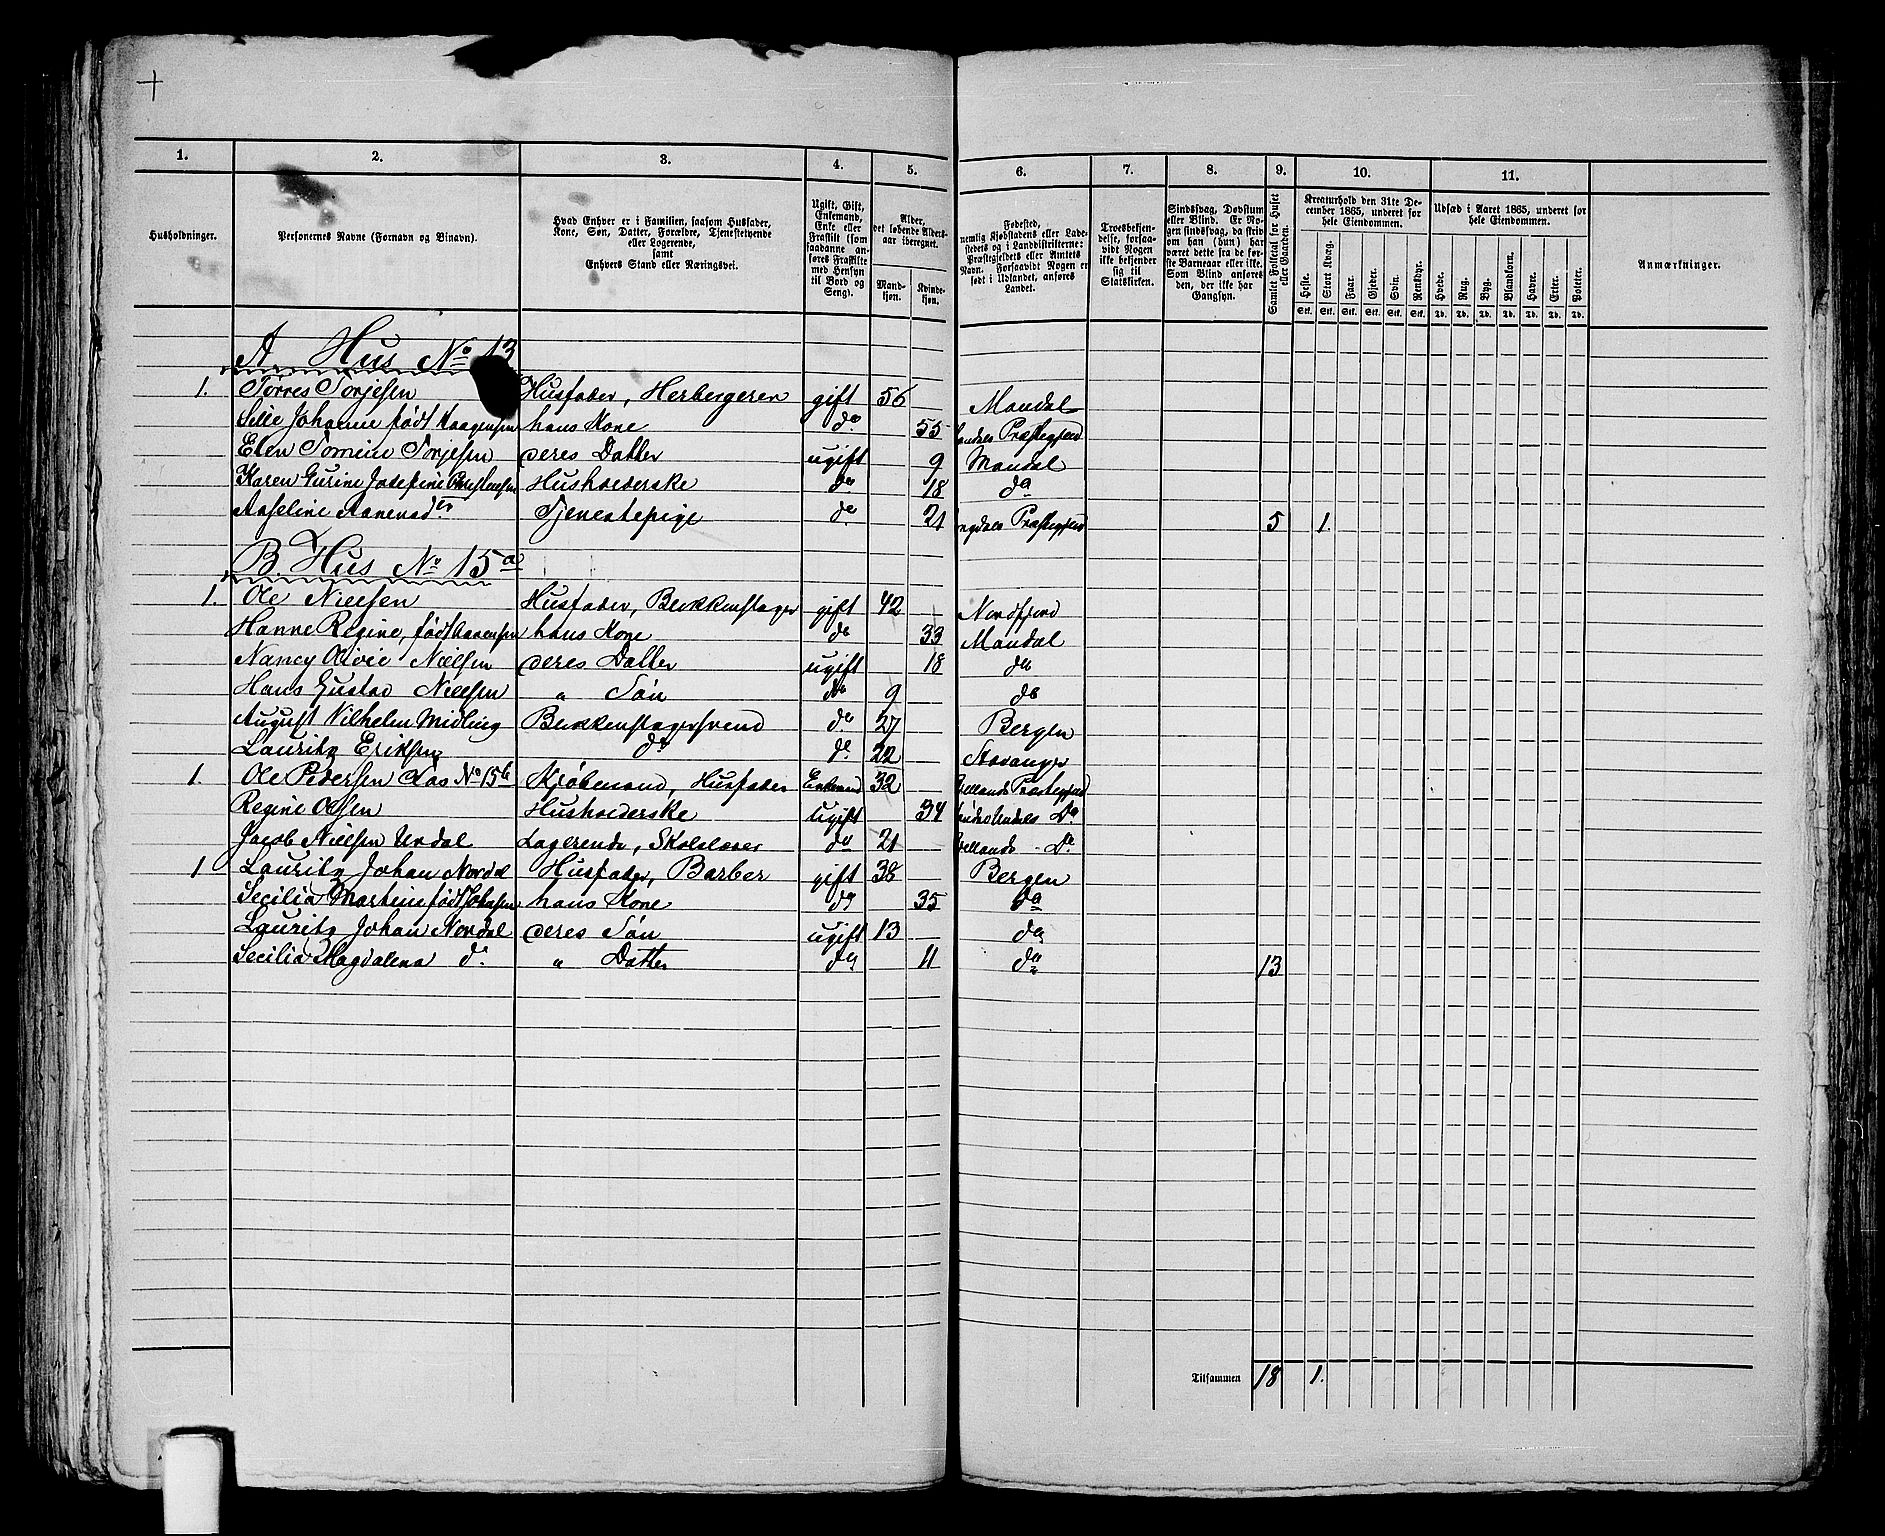 1. 2. 3. 4. 5. 6. 7. 8. 9. 10. 11.
Husholdninger.
Personernes Navne (Fornavn og Binavn).
Hvad Enhver er i Familien, saasom Husfader,
Kone, Søn, Datter, Forældre, Tjenestetyende
eller Logerende,
samt
Enhvers Stand eller Næringsvei.
Ugift, Gift,
Enkemand,
Enke eller
Fraskilt (som
saadanne an-
føres Fraskilte
med Hensyn
til Bord og
Seng).
Alder,
det løbende Alders-
aar iberegnet.
Mand-
kjøn.
Kvinde-
kjøn.
Fødested,
nemlig Kjøbstadens eller Lade-
stedets og i Landdistrikterne:
Præstegjeldets eller Amtets
Navn. Forsaavidt Nogen er
født i Udlandet, anføres
Landet.
Troesbekjen-
delse, forsaa-
vidt Nogen
ikke bekjender
sig til
Statskirken.
Sindssvag, Døvstum
eller Blind. Er No-
gen sindssvag, da skriv
om han (hun) har
været dette fra de før-
ste Barneaar eller ikke.
Som Blind anføres
den, der ikke har
Gangsyn.
Samlet Folketal for Huset
eller Gaarden.
Kreaturhold den 31te De-
cember 1865, underet for
hele Eiendommen.
Heste. Stort Kvæg. Faar. Gjeder. Svin. Rensdyr.
Stk. Stk. Stk. Stk. Stk. Stk.
Udsæd i Aaret 1865, underet for
hele Eiendommen.
Hvede. Rug. Byg. Blandkorn. Havre. Erter. Poteter.
Td. Td. Td. Td. Td. Td. Td.
Anmærkninger.
A Hus No 13
1. Tørres Torjesen Husfader, Herbergerer gift 56 Mandal
Johanne født Kaagensen hans Kone do 55 Præstegjeld
Elen Tomine Torjesen deres Datter ugift 9 Mandal
Karen Gurine Josefine Husholderske do 18 do
Aaseline Aanensdtr Tjenestepige do 21 Præstegjeld 5 1.
B. Hus No 15a
1. Ole Nielsen Husfader, Blikkenslager gift 42 Nordfjord
Hanne Regine, født Aanensen hans Kone do 33 Mandal
Nancy Olivie Nielsen deres Datter ugift 18 do
Hans Gustav Nielsen " Søn do 9 do
August Vilhelm Midling Blikkenslagersvend do 27 Bergen
Lauritz Eriksen do do 22 Stavanger
1. Ole Pedersen Aas No 15b Kjøbmand, Husfader Enkemand 32 Præstegjeld
Regine Olsen Husholderske ugift 34 Do
Jacob Nielsen Undal Logerende, Skolelærer do 21 Do
1 Lauritz Johan Nordal Husfader, Barber gift 38 Bergen
Secilia Martine født Johnsen hans Kone do 35 do
Lauritz Johan Nordal deres Søn ugift 13 do
Secilia Magdalena do " Datter do 11 do 13
Tilsammen 18 1.